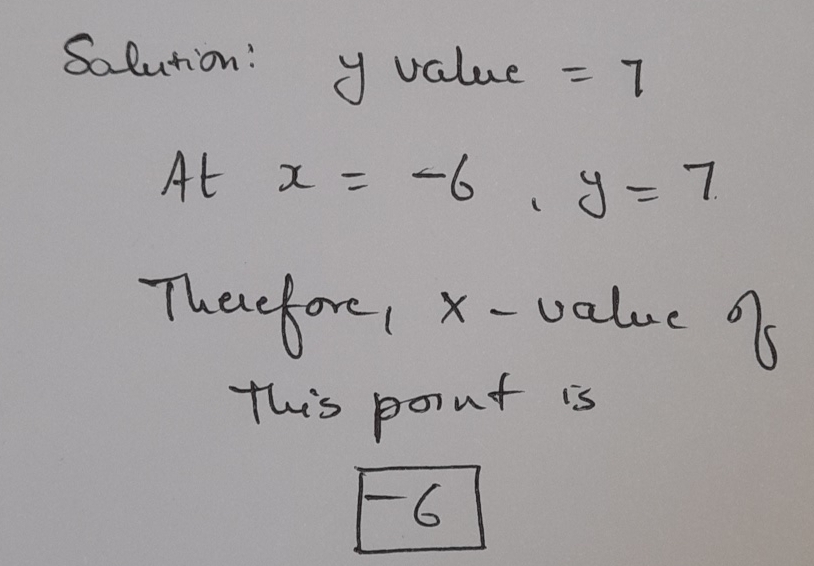 Solution: y value = 7
At x = -6, y = 7.
Therefore, x-value of
this point is
-6